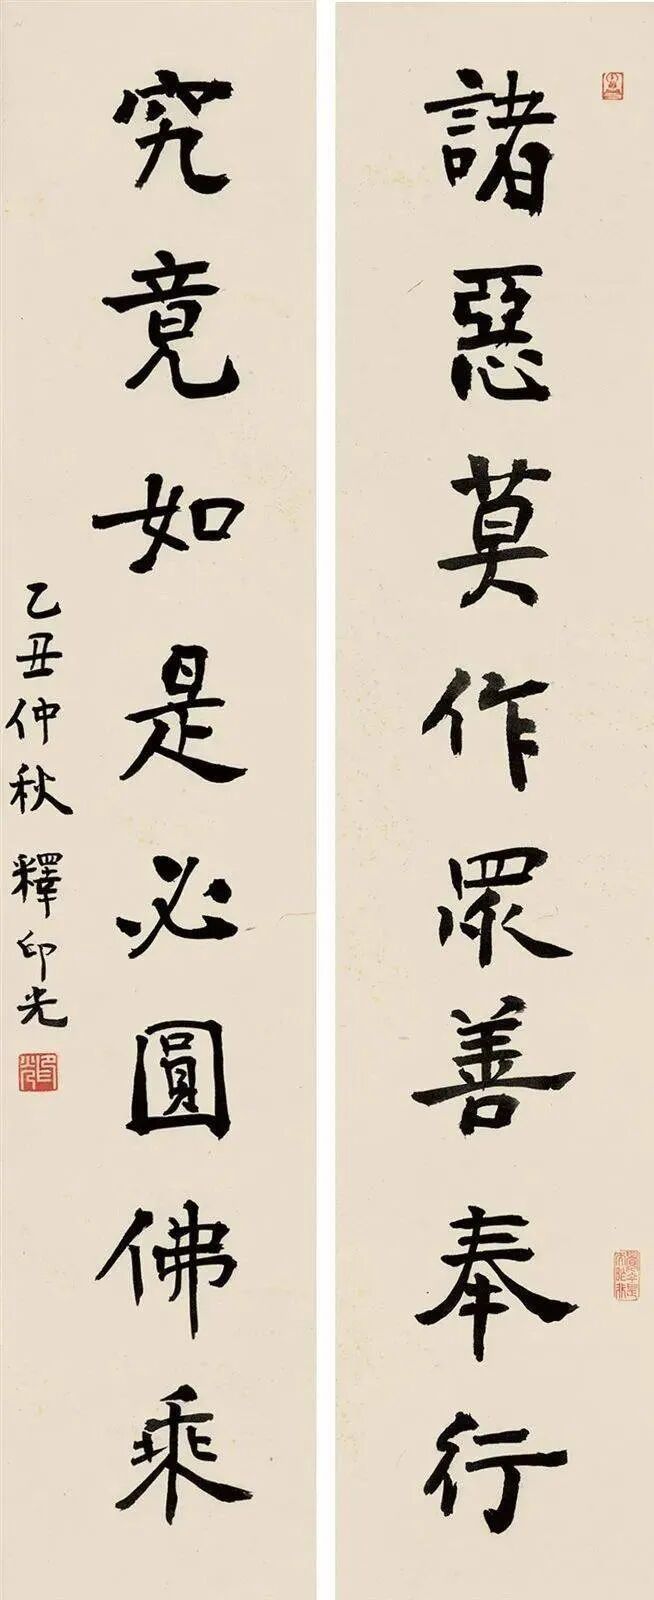 諸惡莫作眾善奉行
究竟如是必圓佛乘
乙丑仲秋 釋印光
印光